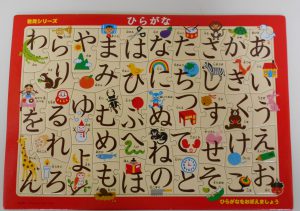 シリーズ
ひらがな
あいうえお
かきくけこ
さしすせそ
たちつてと
なにぬねの
はひふへほ
まみむめも
やゆよ
らりるれろ
わをん
ひらがなをおぼえましょう